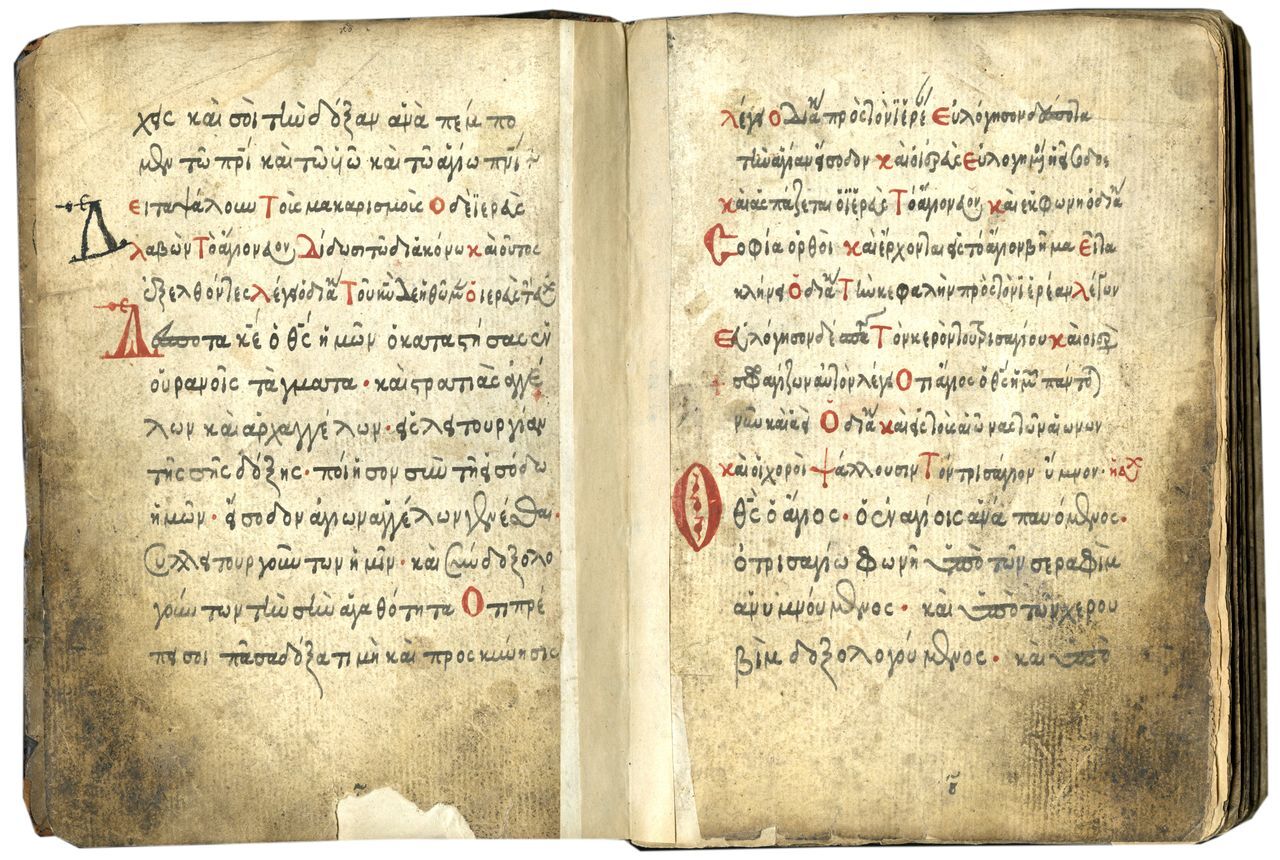 χῆς καὶ σοὶ τὴν δόξαν ἀνα πέμ πο
μεν τῶ πρὶ καὶ τῶ υῶ καὶ τῶ ἁγίω πνι
Ειτα ψάλουν Τοὺς μακαρισμοὺς Ο δὲ ἱερεὺς
λαβὼν Τὸ ἅγιον Δίδωσι τῶ διακόνω καὶ οὕτως
ἐξελθόντες λέγει ὁ δια Τοῦ κυ Δεηθῶμ ὁ ἱερεὺς
Δέσποτα κε ὁ θς ἡμῶν ὁ καταστήσας ἐν
οὐρανοῖς τάγματα · καὶ στρατιὰς ἀγγέ
λων καὶ ἀρχαγγέλων · εἰς λειτουργίαν
τῆς σῆς δόξης · ποίησον σὺν τῆ εἰσόδω
ἡμῶν · εἴσοδον ἁγίων ἀγγέλων γενέσθαι ·
συλλειτουργούντων ἡμῖν · καὶ συνδοξολο
γούντων τὴν σὴν ἀγαθότητα Ὅτι πρέ
πει σοι πᾶσα δόξα τιμὴ καὶ προσκύνησις
λέγει Ο δια πρὸς τὸν ἱερέ Εὐλόγησον δέσποτα
τὴν ἁγίαν εἴσοδον καὶ ὁ ἱερεὺς Εὐλογημ ἡ εἴσοδος
καὶ ἀσπάζεται ὁ ἱερεὺς Τὸ ἅγιον καὶ ἐκφωνῆ ὁ δια
Σοφία ὀρθοὶ καὶ ἔρχονται εἰς τὸ ἅγιον βῆμα Ειτα
κλίνει Ὁ δια Τὴν κεφαλὴν πρὸς τὸν ἱερέαν λέγων
Εὐλόγησον δέσποτα Τὸν κερὸν τοῦ τρισαγίου καὶ ὁ ιερ
σφραγίζων αὐτὸν λέγει Ὅτι ἅγιος ὁ θς ἡμ πάντο
νῦν καὶ ἀεὶ Ὁ δια καὶ εἰς τοὺς αἰῶνας τῶν αἰώνων
καὶ οἱ χοροὶ ψάλλουσιν Τὸν τρισάγιον ὕμνον · ἡ εὐχ
Ὁ θς ὁ ἅγιος · ὁ ἐν ἁγίοις ἀναπαυόμενος ·
ὁ τρισαγίω φωνῆ ὑπὸ τῶν σεραφὶμ
ἀνυμνούμενος · καὶ ὑπὸ τῶν χερου
βὶμ δοξολογούμενος · καὶ ὑπὸ